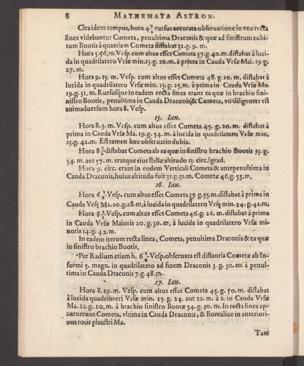 8 MATHEMATA ASTRON.
Circa idem tempus, hora 4⅔ rursus accurata observatione in vna recta
lineæ videbantur Cometa, penultima Draconis & quæ ad sinistrum cubi-
tum Bootis à quantis Cometa distabat 32. g. 9. m.
Hora 5. 56. m. Vesp. cum altus esset Cometa 37. g. 40. m. distabat à luci-
da in quadrilatero Vrsæ min. 13. g. 20. m. à prima in Cauda Vrsæ Mai. 19. g.
27. m.
Hora 9. 15. m. Vesp. cum altus esset Cometa 48. g. 10. m. distabat à
lucida in quadrilatero Vrsæ min. 13. g. 15. m. à prima in Cauda Vrsæ Ma.
19. g. 31. m. Rursusque in eadem recta linea erant ea quæ in brachio sini-
nistro Bootis, penultima in Cauda Draconis & Cometa, vti diligenter est
animadversum hora 8. Vesp.
15. Ian.
Hora 8. 3. m. Vesp. cum altus esset Cometa 45. g. 26. m. distabat à
prima in Cauda Vrsæ Ma. 19. g. 54. m. à lucida in quadrilatero Vrsæ min.
13. g. 42. m. Est tamen hæc observatio dubia.
distabat Cometa ab ea quæ in sinistro brachio Bootis 35. g.
54. m. aut 57. m. eratque eius stellæ altitudo 13. circ. grad.
Hora 9. circ. erant in eodem Verticali Cometa & antepenultima in
Cauda Draconis, huius altitudo fuit 31. g. 3. m. Cometæ 46. g. 55. m.
16. Ian.
Vesp. cum altus esset Cometa 39. g. 55. m. distabat à prima in
Cauda Vrsæ Ma. 20. g. 18. m, à lucida in quadrilatero Vrsæ min. 24. g. 42. m.
Vesp. cum altus esset Cometa 46. g. 21. m. distabat à prima
in Cauda Vrsæ Maioris 20. g. 10. m, à lucida in quadrilatero Vrsæ mi-
noris 14. g. 42. m.
In eadem iterum recta linea, Cometa, penultima Draconis & ea quæ
in sinistro brachio Bootis,
Per Radium etiam h. Vesp. observata est distantia Cometæ ab In-
formi 5. magn. in quadrilatero ad finem Draconis 3. g. 30. m. à penul-
tima in Cauda Draconis 7. g. 48. m.
17. Ian.
Hora 8. 29. m. Vesp. cum altus esset Cometa 45. g. 50. m. distabat
à lucida quadrilateri Vrsæ min. 15. g. 24. aut 22. m. à 2. in Cauda Vrsæ
Ma. 21. g. 20. m. à brachio sinistro Bootæ 34. g. 50. m. In recta linea ap-
paruerunt Cometa, vltima in Cauda Draconis, & Borealior in anteriori-
ous rotis plaustri Ma.
Tani